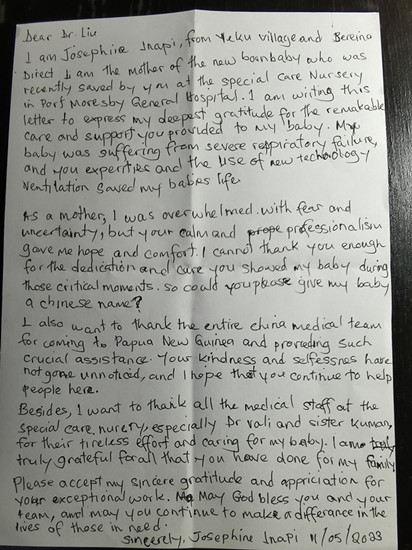 Dear Dr. Liu
I am Josephine Inapi, from Yeku village and Bereina
Direct I am the mother of the new boanbaby who was
recently saved by you at the special care Nursery
in Port Moresby General Hospital. I am writing this
letter to express my deepest gratitude for the remakable
care and support you provided to my baby. My
baby was suffering from severe respiratory failure,
and you experities and the use of new technology
ventilation saved my babies life.
As a mother, I was overwhelmed with fear and
uncertainty, but your calm and professionalism
gave me hope and comfort. I cannot thank you enough
for the dedication and care you showed my baby during
those critical moments. so could you please give my baby
a chinese name?
I also want to thank the entire china medical team
for coming to Papua New Guinea and providing such
crucial assistance. Your kindness and selfessnes have
not gone unnoticed, and I hope that you continue to help
people here.
Besides, I want to thank all the medical staff at the
special care, nursery, especially Dr Vali and sister Kuman,
for their tireless effort and caring for my baby. I am
truly grateful for all that you have done for my family
Please accept my sincere gratitude and appriciation for
your exceptional work. May God bless you and your
team, and may you continue to make a difference in the
lives of those in need.
Sincerely, Josephine Inapi 11/05/2023